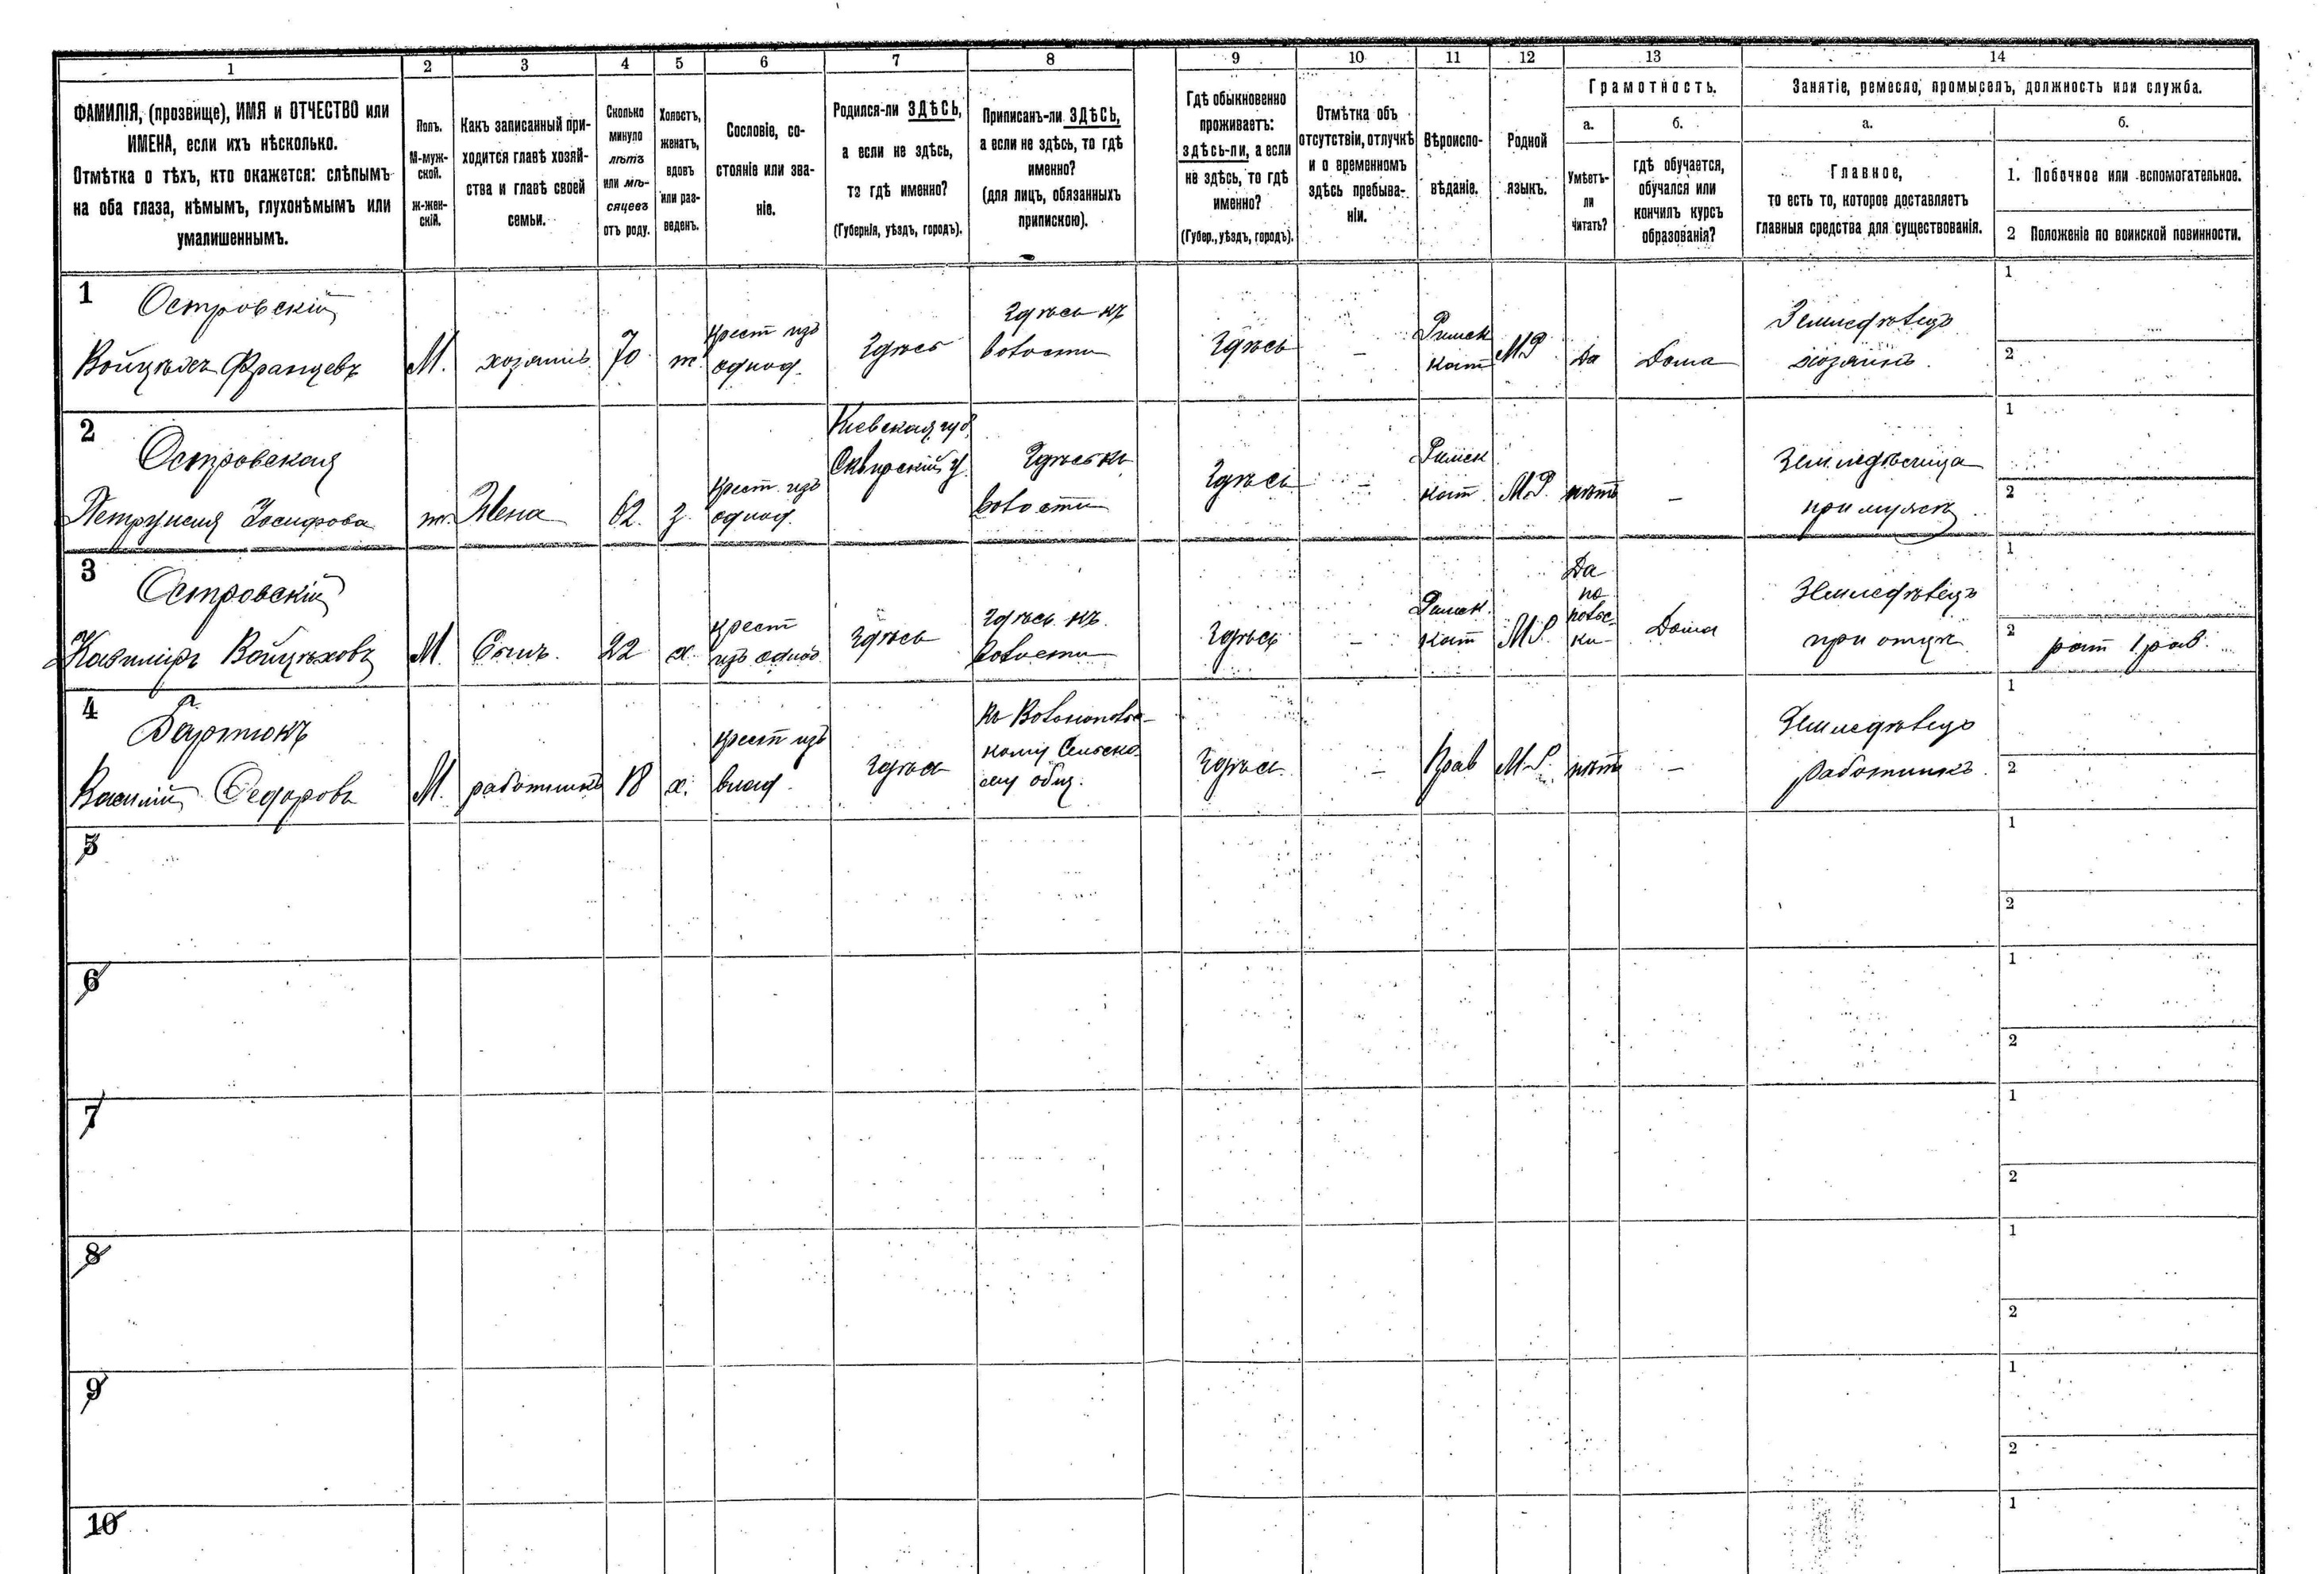 1 2 3 4 5 6 7 8 9 10 11 12 13 14
ФАМИЛІЯ, (прозвище), ИМЯ и ОТЧЕСТВО или
ИМЕНА, если ихъ нѣсколько.
Отмѣтка о тѣхъ, кто окажется: слѣпымъ
на оба глаза, нѣмымъ, глухонѣмымъ или
умалишеннымъ.
Полъ.
М-муж-
ской.
ж-жен-
скій.
Какъ записанный при-
ходится главѣ хозяй-
ства и главѣ своей
семьи.
Сколько
минуло
лѣтъ
или мѣ-
сяцевъ
отъ роду.
Холостъ,
женатъ,
вдовъ
или раз-
веденъ.
Сословіе, со-
стояніе или зва-
ніе.
Родился-ли ЗДѢСЬ,
а если не здѣсь,
то гдѣ именно?
(Губернія, уѣздъ, городъ).
Приписанъ-ли ЗДѢСЬ,
а если не здѣсь, то гдѣ
именно?
(для лицъ, обязанныхъ
припискою).
Гдѣ обыкновенно
проживаетъ:
здѣсь-ли, а если
не здѣсь, то гдѣ
именно?
(Губер., уѣздъ, городъ).
Отмѣтка объ
отсутствіи, отлучкѣ
и о временномъ
здѣсь пребыва-
ніи.
Вѣроиспо-
вѣданіе.
Родной
языкъ.
Грамотность.
а.
Умѣетъ-
ли
читать?
б.
гдѣ обучается,
обучался или
кончилъ курсъ
образованія?
Занятіе, ремесло, промыселъ, должность или служба.
а.
Главное,
то есть то, которое доставляетъ
главныя средства для существованія.
б.
1. Побочное или вспомогательное.
2 Положеніе по воинской повинности.
1
Островскій
Войцѣхъ Францевъ
М.
хозяинъ
70
ж.
крест изъ
однод.
Здѣсь
Здѣсь къ
волости
Здѣсь
-
Римск
кат
М.Р.
Да
Дома
Земледѣлецъ
хозяинъ.
1
2
2
Островская
Петрунеля Іосифова
ж.
Жена
62.
з.
крест. изъ
однод.
Кіевская губ
Сквирскій у.
Здѣсь къ
волости
Здѣсь
-
Римск
кат.
М.Р.
нѣтъ
-
Земледѣлица
при мужѣ
1
2
3
Островскій
Казиміръ Войцѣховъ
М.
Сынъ.
22
х.
крест
изъ однод
Здѣсь
Здѣсь къ.
волости
Здѣсь
-
Римск.
кат
М.Р.
Да
по
польс-
ки
Дома
Земледѣлецъ
при отцѣ
1
2
рат 1 раз.
4
Василій Федоровъ
М.
работникъ
18
х.
крест изъ
влад.
Здѣсь
кому Сельско
му общ.
Здѣсь
-
Прав
М.Р.
нѣтъ
-
Земледѣлецъ
работникъ.
1
2
5
1
2
6
1
2
7
1
2
8
1
2
9
1
2
10
1